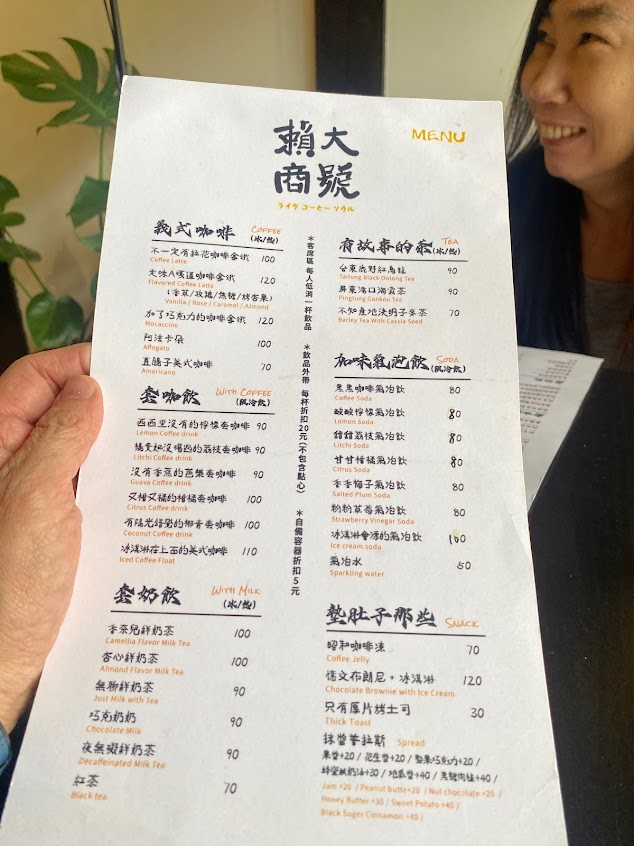 賴大
商號
MENU
ライダ コーヒー ソウル
義式咖啡 COFFEE
(冰/熱)
不一定有拉花咖啡拿鐵 100
Coffee Latte
大味A嘎逼咖啡拿鐵 120
Flavored Coffee Latte
(香草/玫瑰/焦糖/烤杏果)
Vanilla / Rose / Caramel / Almond
加了巧克力的咖啡拿鐵 120
Mosaccino
阿法卡朵 100
Affogato
直腸子美式咖啡 70
Americano
套咖飲 WITH COFFEE
(限冷飲)
西西里沒有的檸檬套咖啡 90
Lemon Coffee drink
楊貴妃沒喝過的荔枝套咖啡 90
Litchi Coffee drink
沒有香蕉的芭樂套咖啡 90
Guava Coffee drink
又柑又橘的柑橘套咖啡 100
Citrus Coffee drink
有陽光鈴聲的椰青套咖啡 100
Coconut Coffee drink
冰淇淋在上面的美式咖啡 110
Iced Coffee Float
套奶飲 WITH MILK
(冰/熱)
香奈兒鮮奶茶 100
Camellia Flavor Milk Tea
杏心鮮奶茶 100
Almond Flavor Milk Tea
無聊鮮奶茶 90
Just Milk with Tea
巧克奶奶 90
Chocolate Milk
夜無礙鮮奶茶 90
Decaffeinated Milk Tea
紅茶 70
Black tea
＊客席區 每人低消 一杯飲品 ＊飲品外帶 每杯折扣20元(不包含點心) ＊自備容器折扣5元
有故事的茶 TEA
(冰/熱)
台東鹿野紅烏龍 90
Taitung Black Oolong Tea
屏東港口海雲茶 90
Pingtung Gankou Tea
不知產地決明子麥茶 70
Barley Tea With Cassia Seed
加味氣泡飲 SODA
(限冷飲)
黑黑咖啡氣泡飲 80
Coffee Soda
酸酸檸檬氣泡飲 80
Lomon Soda
甜甜荔枝氣泡飲 80
Litchi Soda
甘甘柑橘氣泡飲 80
Citrus Soda
香香梅子氣泡飲 80
Salted Plum Soda
粉粉草莓氣泡飲 80
Strawberry Vinegar Soda
冰淇淋會漂的氣泡飲 100
Ice cream soda
氣泡水 50
Sparkling water
墊肚子那些 SNACK
昭和咖啡凍 70
Coffee Jelly
儒文布朗尼 + 冰淇淋 120
Chocolate Brownie with Ice Cream
只有厚片烤土司 30
Thick Toast
抹醬爹拉斯 Spread
果醬+20 / 花生醬+20 / 堅果巧克力+20 /
蜂蜜鹹奶油+30 / 地瓜醬+40 / 黑糖肉桂+40 /
Jam +20 / Peanut butte+20 / Nut chocolate +20 /
Honey Butter +30 / Sweet Potato +40 /
Black Suger Cinnamon +40 /